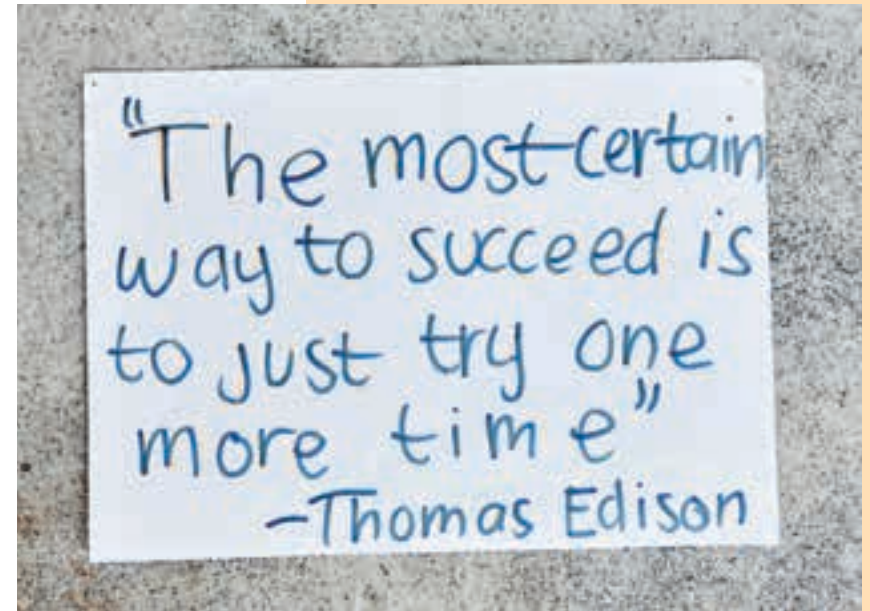 "The most certain
way to succeed is
to just try one
more time"
-Thomas Edison